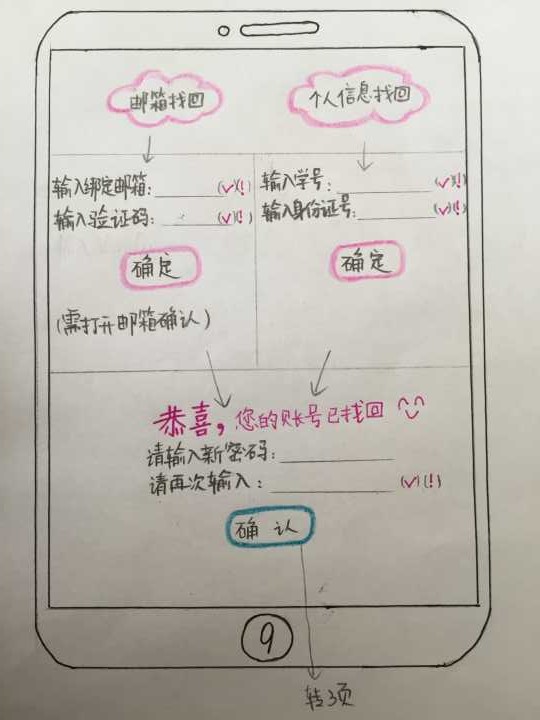 邮箱找回
个人信息找回
输入绑定邮箱:________(✓)(!)
输入验证码:________(✓)(!)
确定
(需打开邮箱确认)
输入学号:________(✓)(!)
输入身份证号:________(✓)(!)
确定
恭喜,您的账号已找回 ^‿^
请输入新密码:________
请再次输入:________(✓)(!)
确认
9
转3页